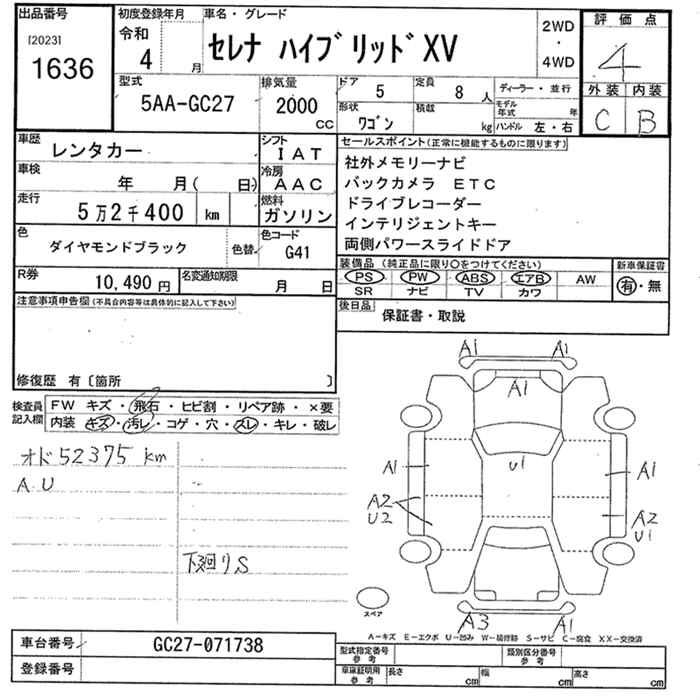 出品番号
[2023]
1636
初度登録年月
令和
4 月
車名・グレード
セレナ ハイブリッドXV
2WD
・
4WD
評価点
4
外装 内装
C B
型式
5AA-GC27
排気量
2000
CC
ドア
5
定員
8 人
形状
ワゴン
積載
kg
ディーラー・並行
モデル年式 年
ハンドル 左・右
車歴
レンタカー
シフト
IAT
車検
年 月( 日)
冷房
AAC
走行
5万2千400 km
燃料
ガソリン
色
ダイヤモンドブラック
色替
色コード
G41
R券
10,490円
名変通知期限
月 日
セールスポイント(正常に機能するものに限ります)
社外メモリーナビ
バックカメラ ETC
ドライブレコーダー
インテリジェントキー
両側パワースライドドア
装備品(純正品に限り○をつけてください)
PS PW ABS エアB AW
SR ナビ TV カワ
新車保証書
有・無
後日品
保証書・取説
注意事項申告欄(不具合内容等は具体的に記入して下さい)
修復歴 有〔箇所 〕
検査員
記入欄
FW キズ・飛石・ヒビ割・リペア跡・×要
内装 キズ・汚レ・コゲ・穴・スレ・キレ・破レ
オド52375 km
AU
下廻りS
A1 A1
A1
U1
A1
A1
A2
U2
A2
U1
スペア
A3 A1
A−キズ E−エクボ U−凹み W−補修跡 S−サビ C−腐食 XX−交換済
車台番号
GC27-071738
登録番号
型式指定番号
参考
類別区分番号
参考
車庫証明用
参考
長さ cm
幅 cm
高さ cm